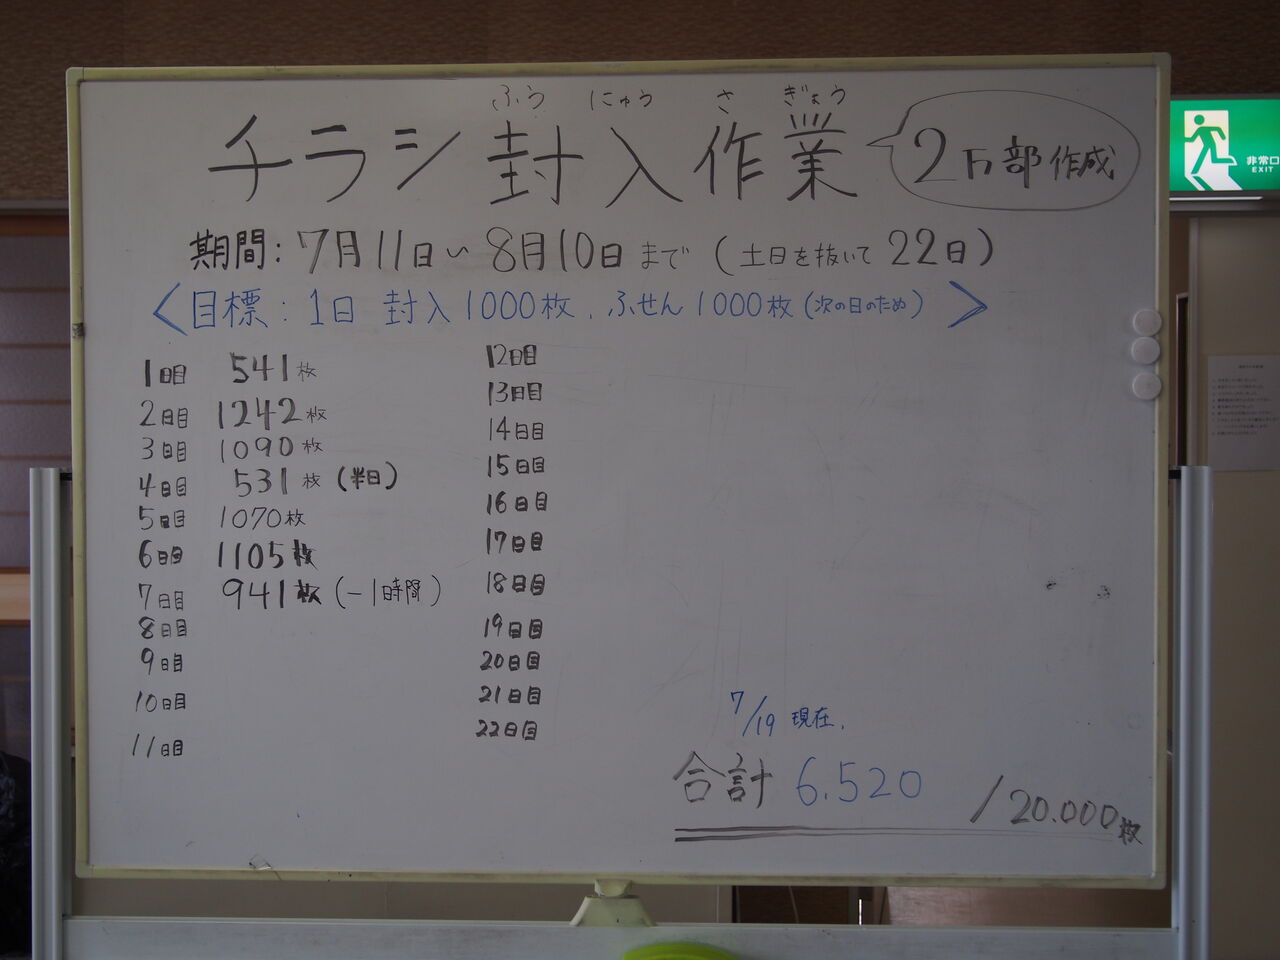 ふうにゅうさぎょう
チラシ封入作業
2万部作成
期間:7月11日~8月10日まで(土日を抜いて22日)
<目標:1日 封入1000枚、ふせん1000枚(次の日のため)>
1日目 541枚
2日目 1242枚
3日目 1090枚
4日目 531枚(半日)
5日目 1070枚
6日目 1105枚
7日目 941枚(-1時間)
8日目
9日目
10日目
11日目
12日目
13日目
14日目
15日目
16日目
17日目
18日目
19日目
20日目
21日目
22日目
7/19 現在.
合計 6.520 /20.000枚
非常口
EXIT